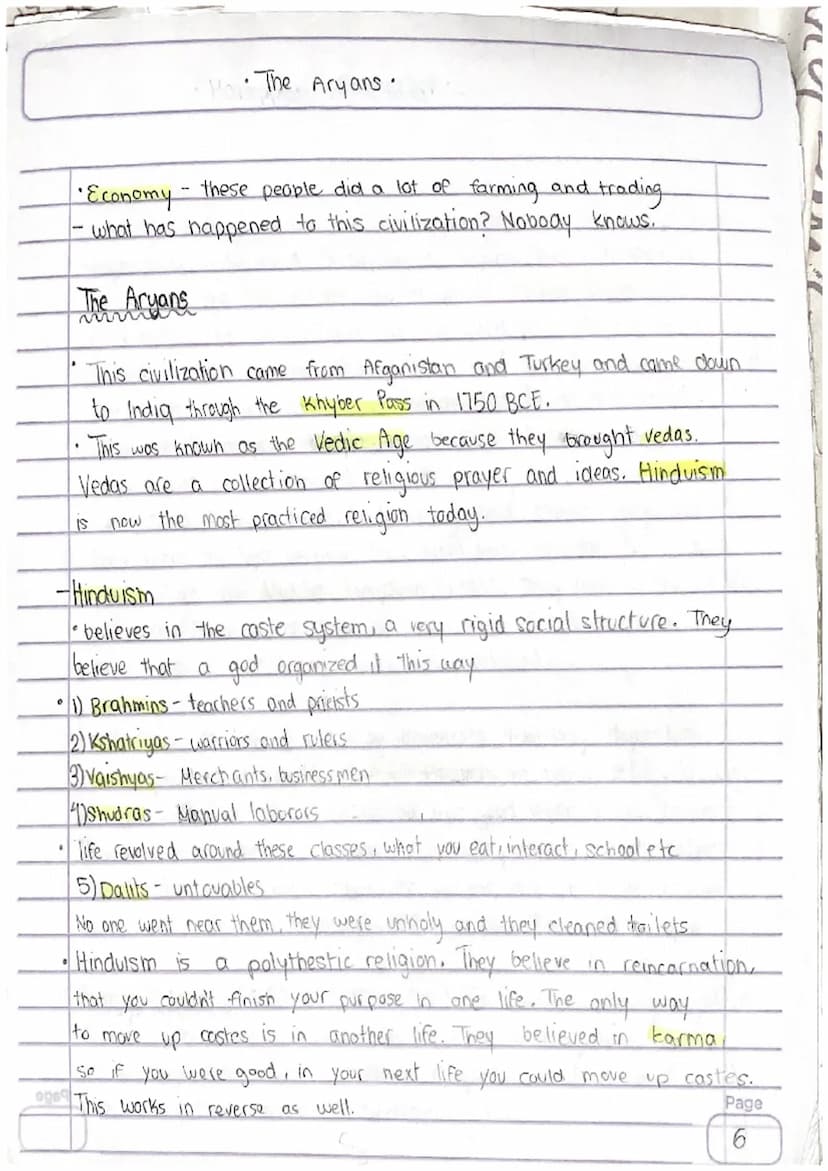 · The Aryans ·
· Economy - these people did a lot of farming and trading
- what has happened to this civilization? Nobody knows.
The Aryans
· This civilization came from Afganistan and Turkey and came down
to India through the Khyber Pass in 1750 BCE.
· This was known as the Vedic Age because they brought vedas.
Vedas are a collection of religious prayer and ideas. Hinduism
is now the most practiced religion today.
- Hinduism
· believes in the caste system, a very rigid social structure. They
believe that a god organized it this way
· 1) Brahmins - teachers and prieists
2) Kshatriyas - warriors and rulers
3) Vaishyas - Merchants, businessmen
4) Shudras - Manual laborors
· life revolved around these classes, what you eat, interact, school etc
5) Dalits - untouables
No one went near them, they were unholy and they cleaned toilets
· Hinduism is a polythestic religion. They believe in reincarnation,
that you couldn't finish your purpose in one life. The only way
to move up castes is in another life. They believed in karma,
so if you were good, in your next life you could move up castes.
This works in reverse as well.
Page
6